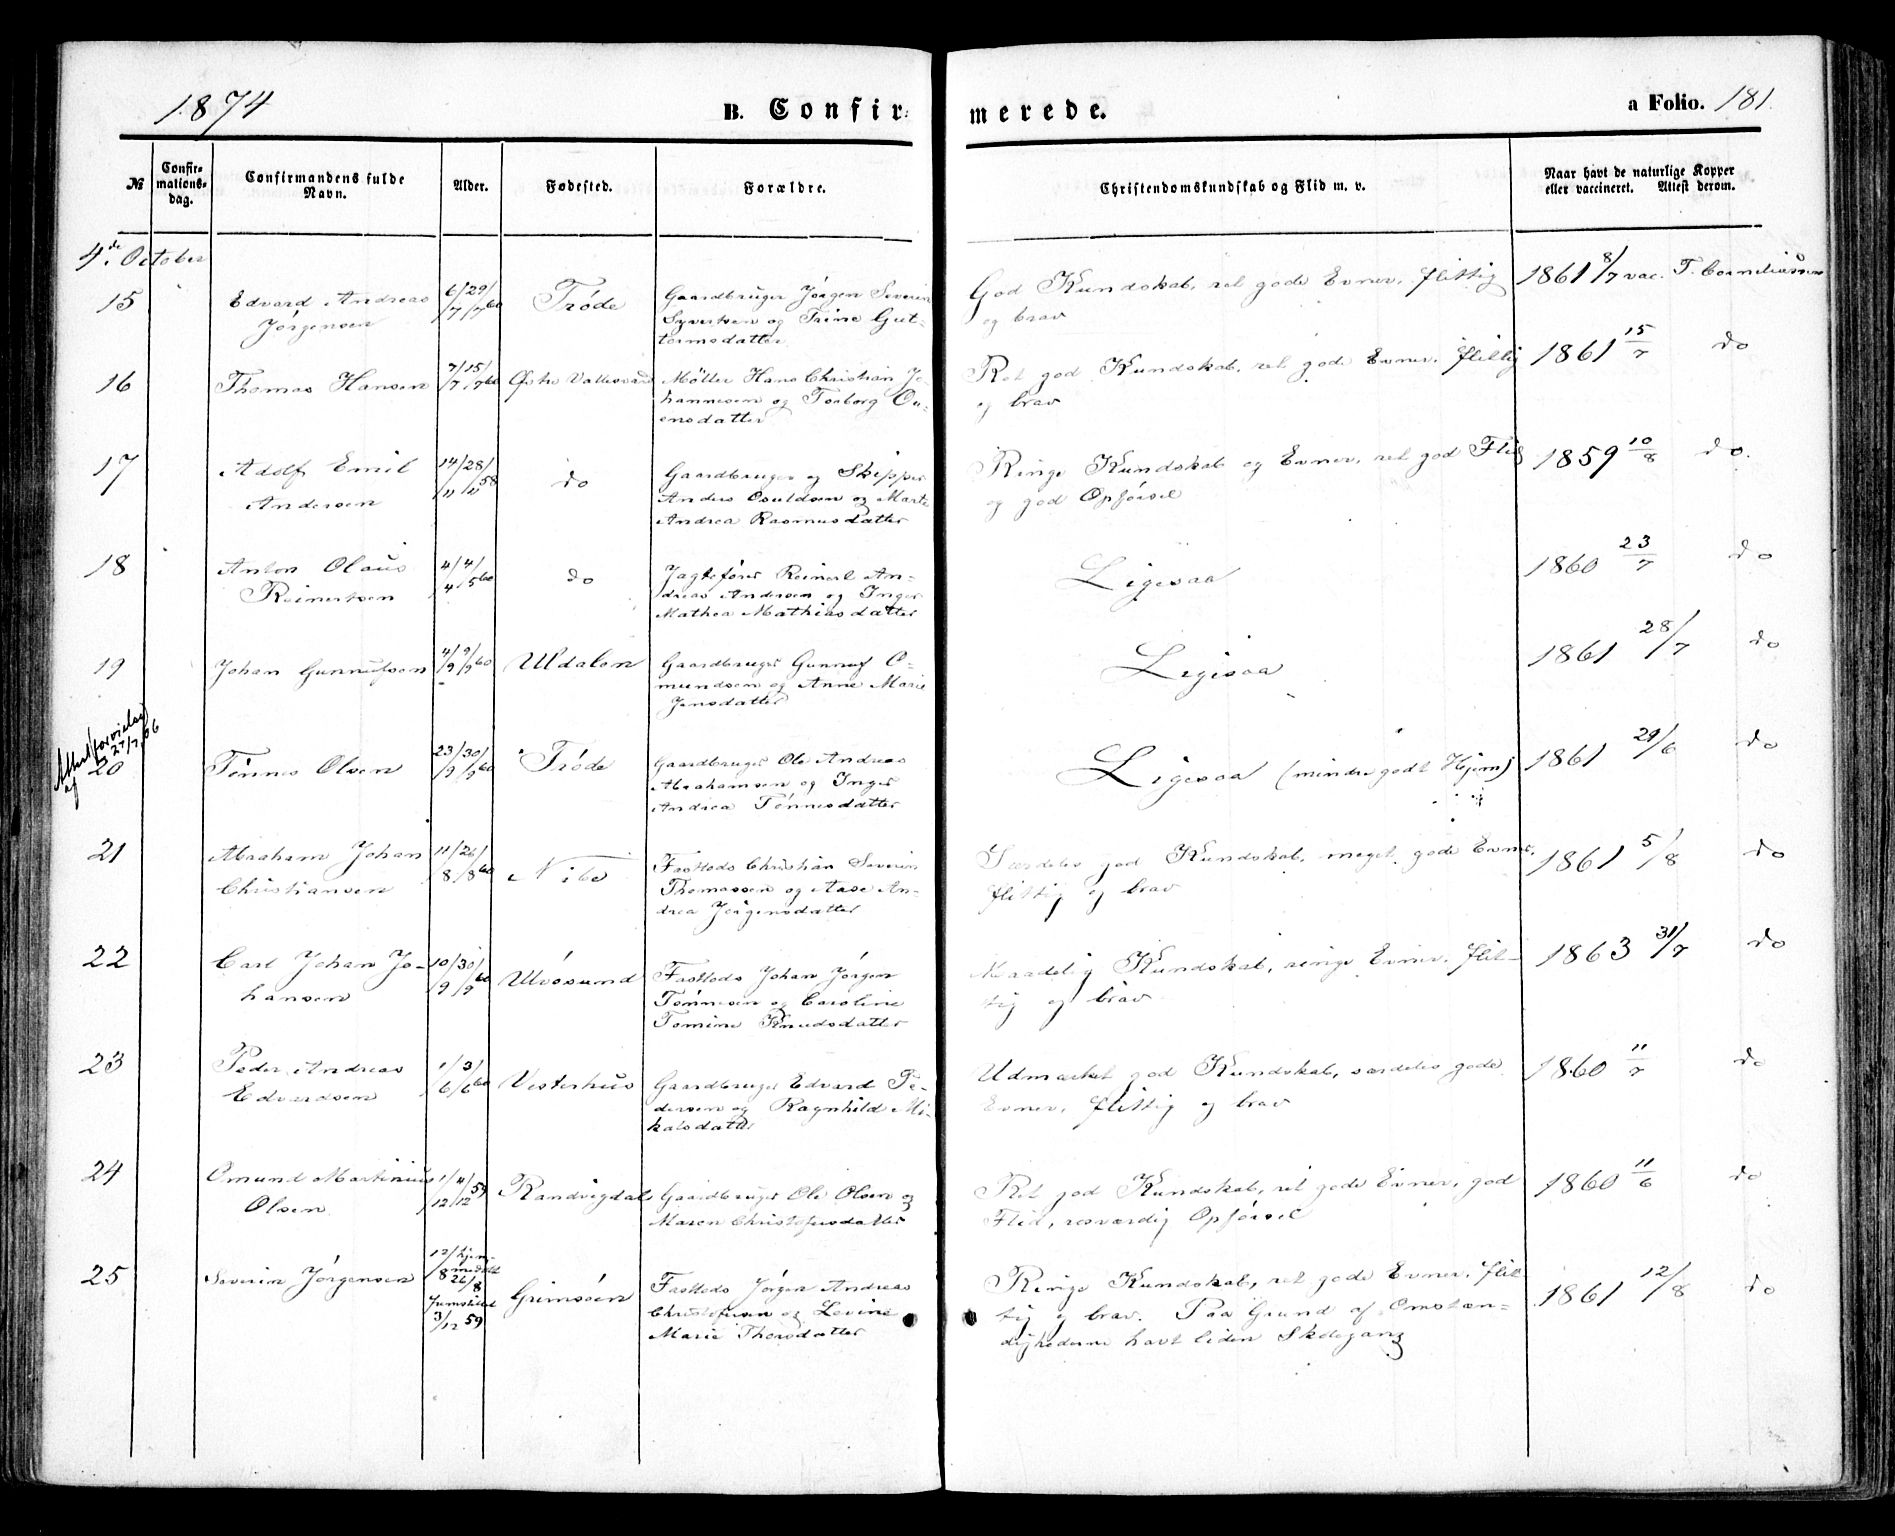 1874
B. Confir-
merede.
a Folio. 181.
№
Confir-
mations-
dag.
Confirmandens fulde
Navn.
Alder.
Fødested.
Forældre.
Christendomskundskab og Flid m. v.
Naar havt de naturlige Kopper
eller vaccineret. Attest derom.
4de October
15 Edvard Andreas
Jørgensen
6/7 29/7 60
Trøde
Gaardbruger Jørgen Severin
Syvertsen og Trine Gut-
tormsdatter
God Kundskab, ret gode Evner, flittig
og brav
1861 8/7 vac. T. Corneliussen
16 Thomas Hansen
7/7 15/7 60
Østre Vallesværd
Møller Hans Christian Jo-
hannesen og Torborg On-
ensdatter
Ret god Kundskab, ret gode Evner, flittig
og brav
1861 15/7 do
17 Adolf Emil
Andersen
14/11 28/11 58
do
Gaardbruger og Skipper
Anders Osuldsen og Marte
Andrea Rasmusdatter
Ringe Kundskab og Evner, ret god Flid
og god Opførsel
1859 10/8 do.
18 Anton Olaus
Reinertsen
4/4 4/5 60
do
Jagtefører Reinert An-
dreas Andersen og Inger
Mathea Mathiasdatter
Ligesaa
1860 23/7 do
19 Johan Gunnufsen
4/9 9/9 60
Uldalen
Gaardbruger Gunnuf O-
mundsen og Anne Marie
Jensdatter
Ligesaa
1861 28/7 do
27/7, 06
20 Tønnes Olsen
23/9 30/9 60
Trøde
Gaardbruger Ole Andreas
Abrahamsen og Inger
Andrea Tønnesdatter
Ligesaa (mindre godt Hjem)
1861 29/6 do
21 Abraham Johan
Christiansen
11/8 26/8 60
Nibe
Fastlods Christian Severin
Thomassen og Aase An-
drea Jørgensdatter
Særdeles god Kundskab, meget gode Evner,
flittig og brav
1861 5/8 do
22 Carl Johan Jo-
hansen
10/9 30/9 60
Ulvøsund
Fastlods Johan Jørgen
Tønnesen og Caroline
Tomine Knudsdatter
Maadelig Kundskab, ringe Evner, flit-
tig og brav
1863 31/7 do
23 Peder Andreas
Edvardsen
1/6 3/6 60
Vesterhus
Gaardbruger Edvard Pe-
dersen og Ragnhild Mi-
kalsdatter
Udmærket god Kundskab, særdeles gode
Evner, flittig og brav
1860 11/7 do
24 Omund Martinius
Olsen
1/12 4/12 59
Randvigdal
Gaardbruger Ole Olsen og
Maren Christofersdatter
Ret god Kundskab, ret gode Evner, god
Flid, rosværdig Opførsel
1860 11/6 do
25 Severin Jørgensen
12/8 hjem-
medøbt
26/8
3/12 59
Grimsøen
Fastlods Jørgen Andreas
Christofersen og Levine
Marie Thorsdatter
Ringe Kundskab, ret gode Evner, flit-
tig og brav. Paa Grund af Omstæn-
dighederne havt liden Skolegang
1861 12/8 do